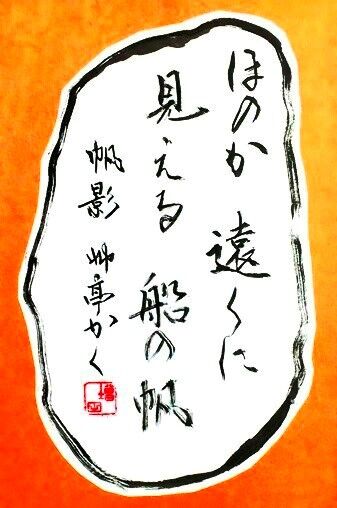 ほのか 遠くに
見える 船の帆
帆影 艸亭かく